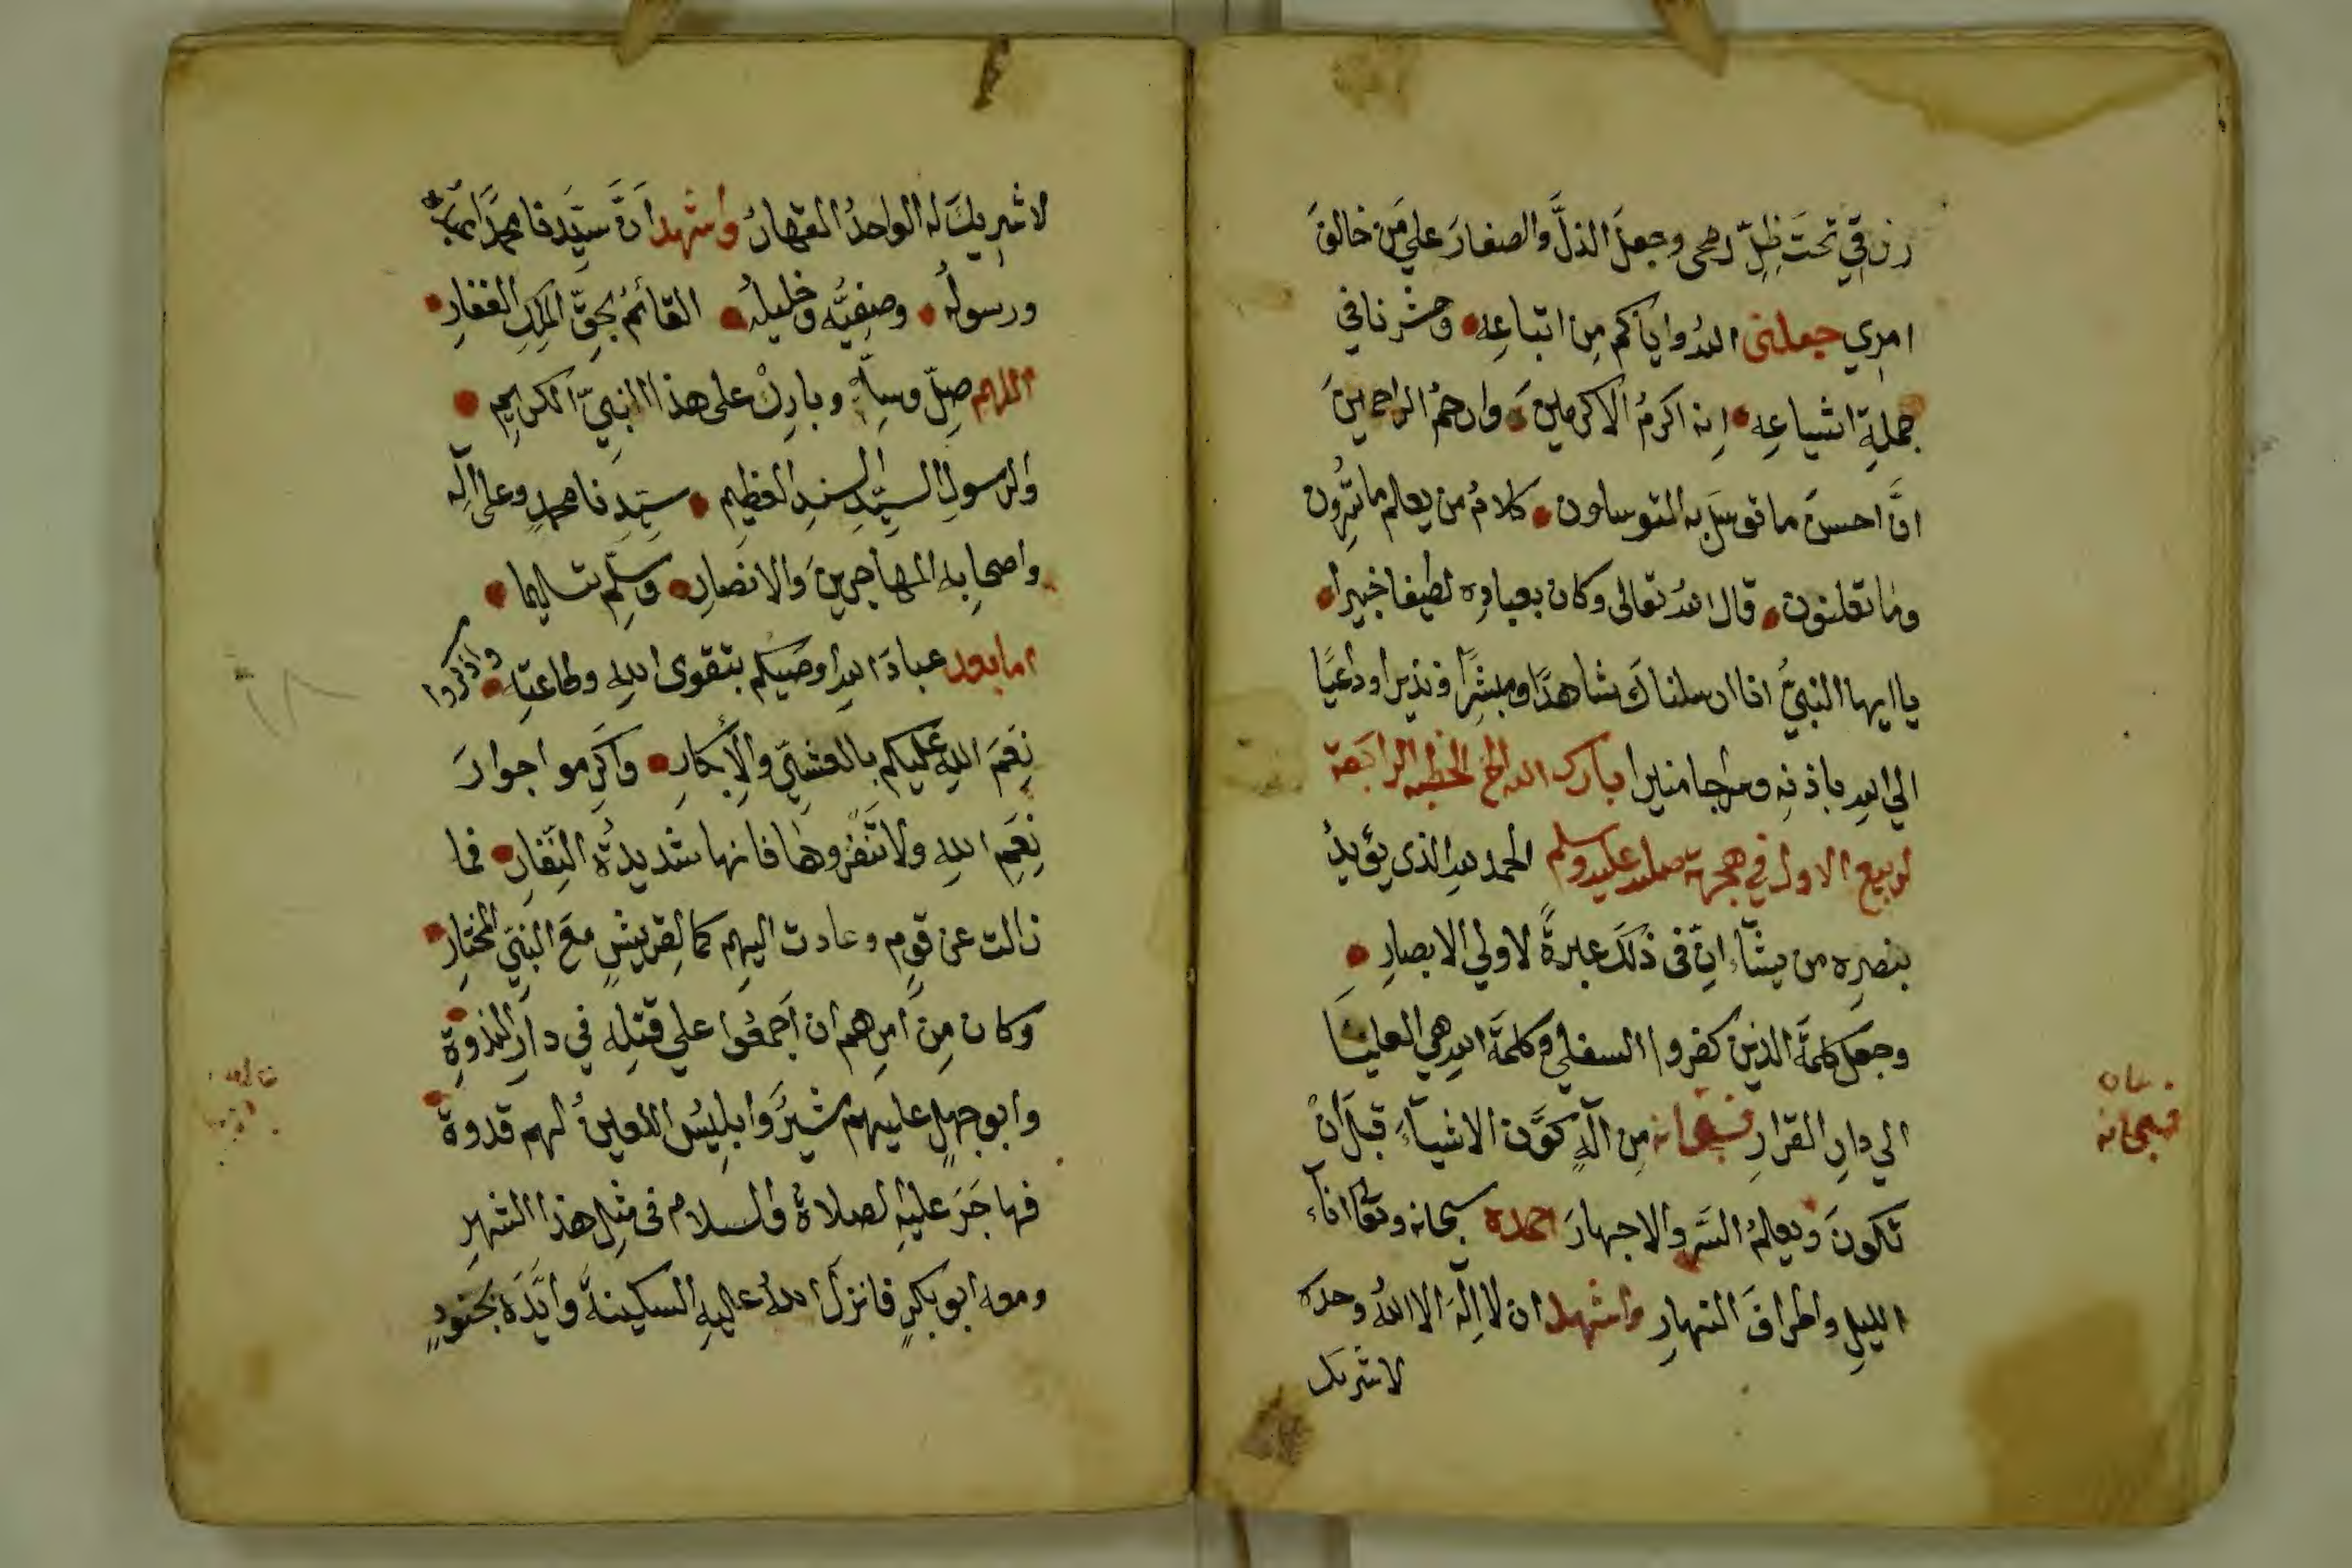 رزقي تحتَ ظِلِّ رمحى وجعلَ الذلَّ والصغارَ علي مَن خالفَ
امرِي جعلنى اللهُ واياكم مِن اتباعِه • وحشرنا في
جملةِ اشياعِه • اِنه اكرمُ الاكرمين • وارحمُ الراحمينَ
انَّ احسنَ ما توسَل به المتوسلون • كلامُ من يعلم ما تُسِرُّون
وما تعلنون • قال اللهُ تعالى وكان بعبادِه لطيفا خبيرا •
يا ايها النبيُّ انا ارسلناكَ شاهدًا ومبشِّرًا ونذيرا وداعيًا
الي اللهِ باذنِه وسراجا منيرا بارك الله الخ الخطبه الرابَعة
لربيع الاول في هجرته صلى الله عليه وسلم الحمد للهِ الذى يؤيدُ
بنصرِه من يشآء انّ فى ذلكَ عبرةً لاولي الابصارِ •
وجعل كلمةَ الذين كفروا السفلي وكلمةُ اللهِ هي العليَا
الي دارِ القرارِ فسبحانه مِن آلهٍ كوَّن الاشيآءَ قبلَ انْ
تكونَ ويعلمُ السَّر والاجهارَ احمده سبحانه وتعا اناآء
الليلِ واطرافَ النهارِ واشهد ان لا اِلٓهَ الا اللهُ وحده
لا شريك
فسبحانه
لا شرِيكَ له الواحدُ القهارُ واشهد اَنَّ سَيِّدنا محمدًا عبده
ورسولُه • وصفِيُّه وخليلُه • القائمُ بحقِّ الملِكِ الغفارِ •
اللهم صِلّ وسلِّم وبارِكْ على هذا النبِيّ الكريمِ •
والرسولِ السيِّدِ السندِ العظيمِ • سيِّدِنا محمدٍ وعلى آلِه
واصحابِه المهاجرينَ والانصارِ • وسلِّم تسليما •
اما بعد عبادَ اللهِ اوصيكم بتقوى اللهِ وطاعتِه • واذكروا
نِعَمَ اللهِ عليكم بالعشيّ والاِبكارِ • واَكرِموا جوارَ
نِعَمِ اللهِ ولا تنَفّروها فانها شديدةُ النِفارِ • فما
زالت عن قومٍ وعادت اليهم كما لِقريشٍ معَ النبيّ المختارِ •
وكان مِن اَمرِهم ان اَجمعُوا علي قتلِه في دارِ الندوةِ •
وابو جهلٍ عليهم يشيرُ وابلِيسُ اللعينُ لهم قدوة •
فهاجَرَ عليهِ الصلاةُ والسلام فى مثلِ هذا الشهرِ
ومعه ابو بكرٍ فانزلَ اللهُ عليهِ السكينةَ وايَّدَه بجنودٍ